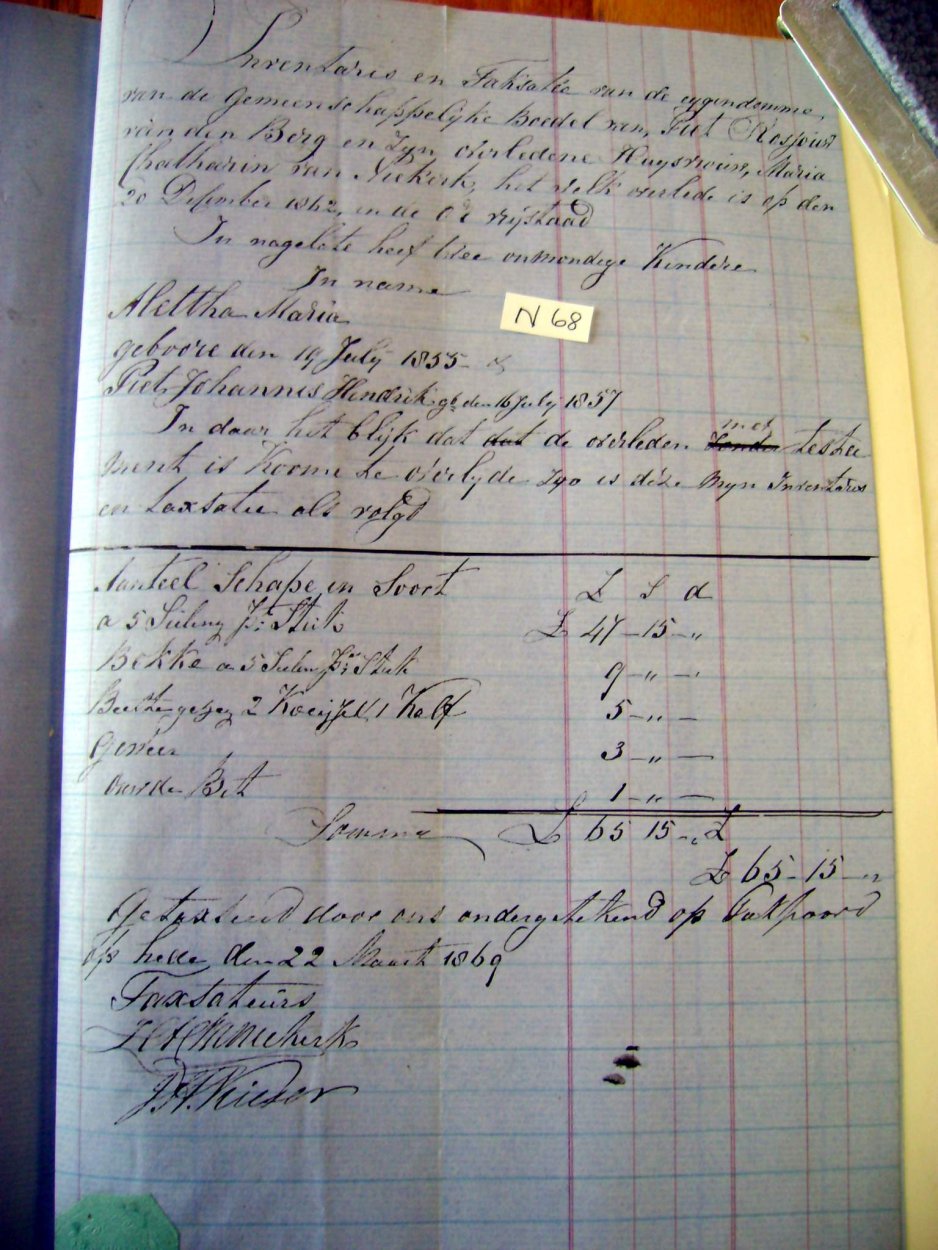 Inventaris en Taksatie van de eygendomme,
van de Gemeenschappelyke Boedel van, Piet
van den Berg en Zyn overledene Huysvrouw, Maria
Chatharin van Niekerk, het welk overlede is op den
20 Desember 1862, in de O R vrijstaad
In nagelate heeft twee onmondige Kindere
In name
Alettha Maria
geboore den 19 July 1855 - &
Piet Johannes Hendrik gb den 16 July 1857
In daar het blijk dat dat de overleden met tester
ment is Koome te overlyde Zyo is deze Myn Inventaris
en taxsatie als volgd
N 68
Aanteel Schape in Soort £ S d
a 5 Sieling Pr Stuk £ 47 - 15 - „
Bokke a 5 Pr Stuk 9 - „ -
2 1 Kalf 5 - „ -
Geweer 3 - „ -
Bet 1 - „ -
Somma £ 65 15 - „ £
£ 65 - 15 - „
Getaxseerd door ons ondergetekend op
op hede den 22 Maart 1869
Taxsateurs